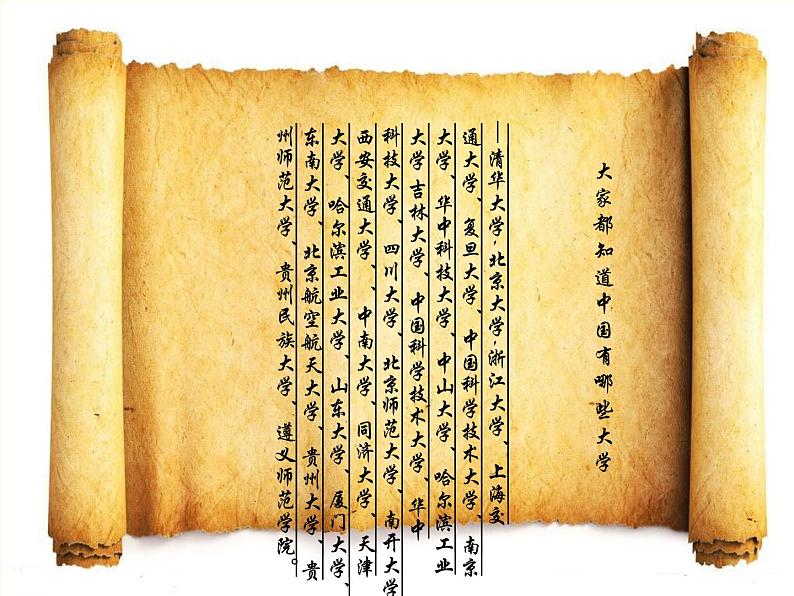 大家都知道中国有哪些大学
—清华大学，北京大学，浙江大学、上海交
通大学、复旦大学、中国科学技术大学、南京
大学、华中科技大学、中山大学、哈尔滨工业
大学 吉林大学、中国科学技术大学、华中
科技大学、四川大学、北京师范大学、南开大学
西安交通大学、中南大学、同济大学、天津
大学、哈尔滨工业大学、山东大学、厦门大学、
东南大学、北京航空航天大学、贵州大学、贵
州师范大学、贵州民族大学、遵义师范学院。